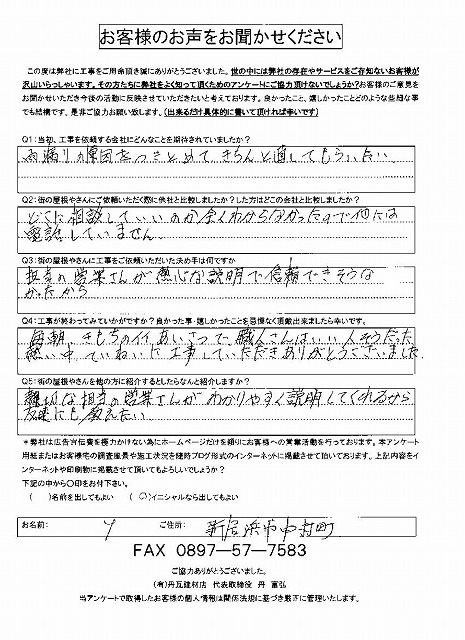 お客様のお声をお聞かせください
この度は弊社に工事をご用命頂き誠にありがとうございました。世の中には弊社の存在やサービスをご存知ないお客様が
沢山いらっしゃいます。その方たちに弊社をよく知って頂くためのアンケートにご協力頂けないでしょうか?お客様のご意見を
お聞かせいただき今後の活動に反映させていただきたいと考えております。良かったこと、嬉しかったことどのような些細な事
でも結構です。是非ご協力お願い致します。(出来るだけ具体的に書いて頂ければ幸いです)
Q1:当初、工事を依頼する会社にどんなことを期待されていましたか?
雨漏りの原因をつきとめて きちんと直してもらいたい
Q2:街の屋根やさんにご依頼いただく際に他社と比較しましたか?した方はどこの会社と比較しましたか?
どこに相談していいのか全くわからなかったので他には
電話していません
Q3:街の屋根やさんに工事をご依頼いただいた決め手は何ですか
担当の営業さんが熱心な説明で信頼できそうな
かったから
Q4:工事が終わってみていかがですか?良かった事・嬉しかったことを忌憚なく頂戴出来ましたら幸いです。
毎朝、きもちのイイあいさつで 職人さんはいい人そうだった
熱い中ていねいに工事していただきありがとうございました
Q5:街の屋根やさんを他の方に紹介するとしたらなんと紹介しますか?
熱心な担当の営業さんがわかりやすく説明してくれるから
友達にも教えたい
*弊社は広告宣伝費を極力かけない為にホームページだけを頼りにお客様への営業活動を行っております。本アンケート
用紙またはお客様宅の調査風景や施工状況を随時ブログ形式のインターネットに掲載させて頂いております。上記内容をイ
ンターネットや印刷物に掲載させて頂いてもよろしいでしょうか?
下記の中から○印をお付下さい。
( )名前を出してもよい (○)イニシャルなら出してもよい
お名前: Y ご住所: 新居浜市中村町
FAX 0897―57―7583
ご協力ありがとうございました。
(有)丹瓦建材店 代表取締役 丹 富弘
当アンケートで取得したお客様の個人情報は関係法規に基づき厳正に管理いたします。